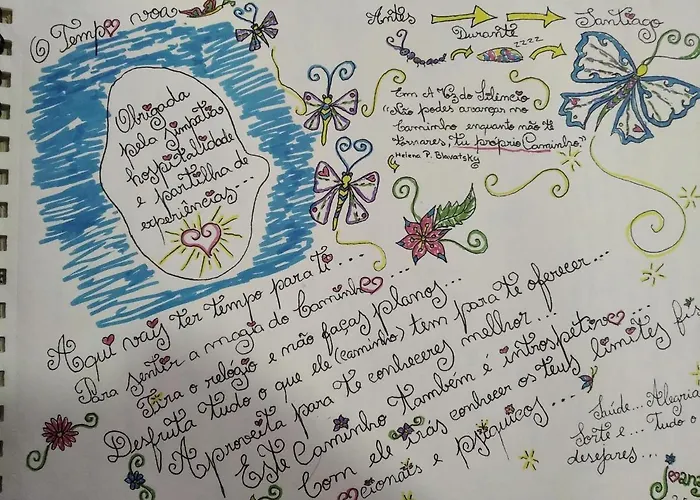 O Tempo voa
Obrigada
pela simpatia
hospitalidade
e partilha de
experiências...
Antes
Durante
zzzz
Santiago
Em A Voz do Silêncio
"Não podes avançar no
Caminho enquanto não te
tornares, tu próprio Caminho."
Helena P. Blavatsky
Aqui vais ter tempo para ti...
Para sentir a magia do Caminho...
Tira o relógio e não faças planos...
Desfruta tudo o que ele (caminho) tem para te oferecer...
Aproveita para te conheceres melhor...
Este Caminho também é introspetivo...
Com ele irás conhecer os teus limites
e psíquicos...
Saúde... Alegria
Sorte e... Tudo o
desejares...